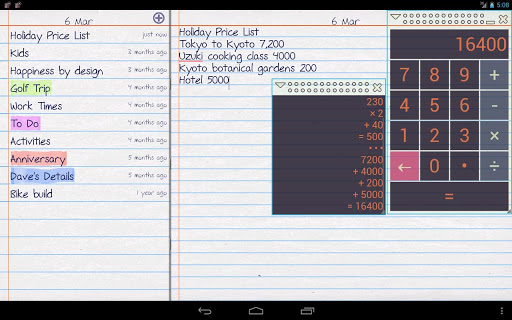 5:08
6 Mar
Holiday Price List just now
Kids 3 months ago
Happiness by design 3 months ago
Golf Trip 4 months ago
Work Times 4 months ago
To Do 4 months ago
Activities 4 months ago
Anniversary 5 months ago
Dave's Details 5 months ago
Bike build 1 year ago
6 Mar
Holiday Price List
Tokyo to Kyoto 7,200
Uzuki cooking class 4000
Kyoto botanical gardens 200
Hotel 5000
230
× 2
+ 40
= 500
• • •
7200
+ 4000
+ 200
+ 5000
= 16400
16400
7 8 9 +
4 5 6 -
1 2 3 ×
← 0 • ÷
=